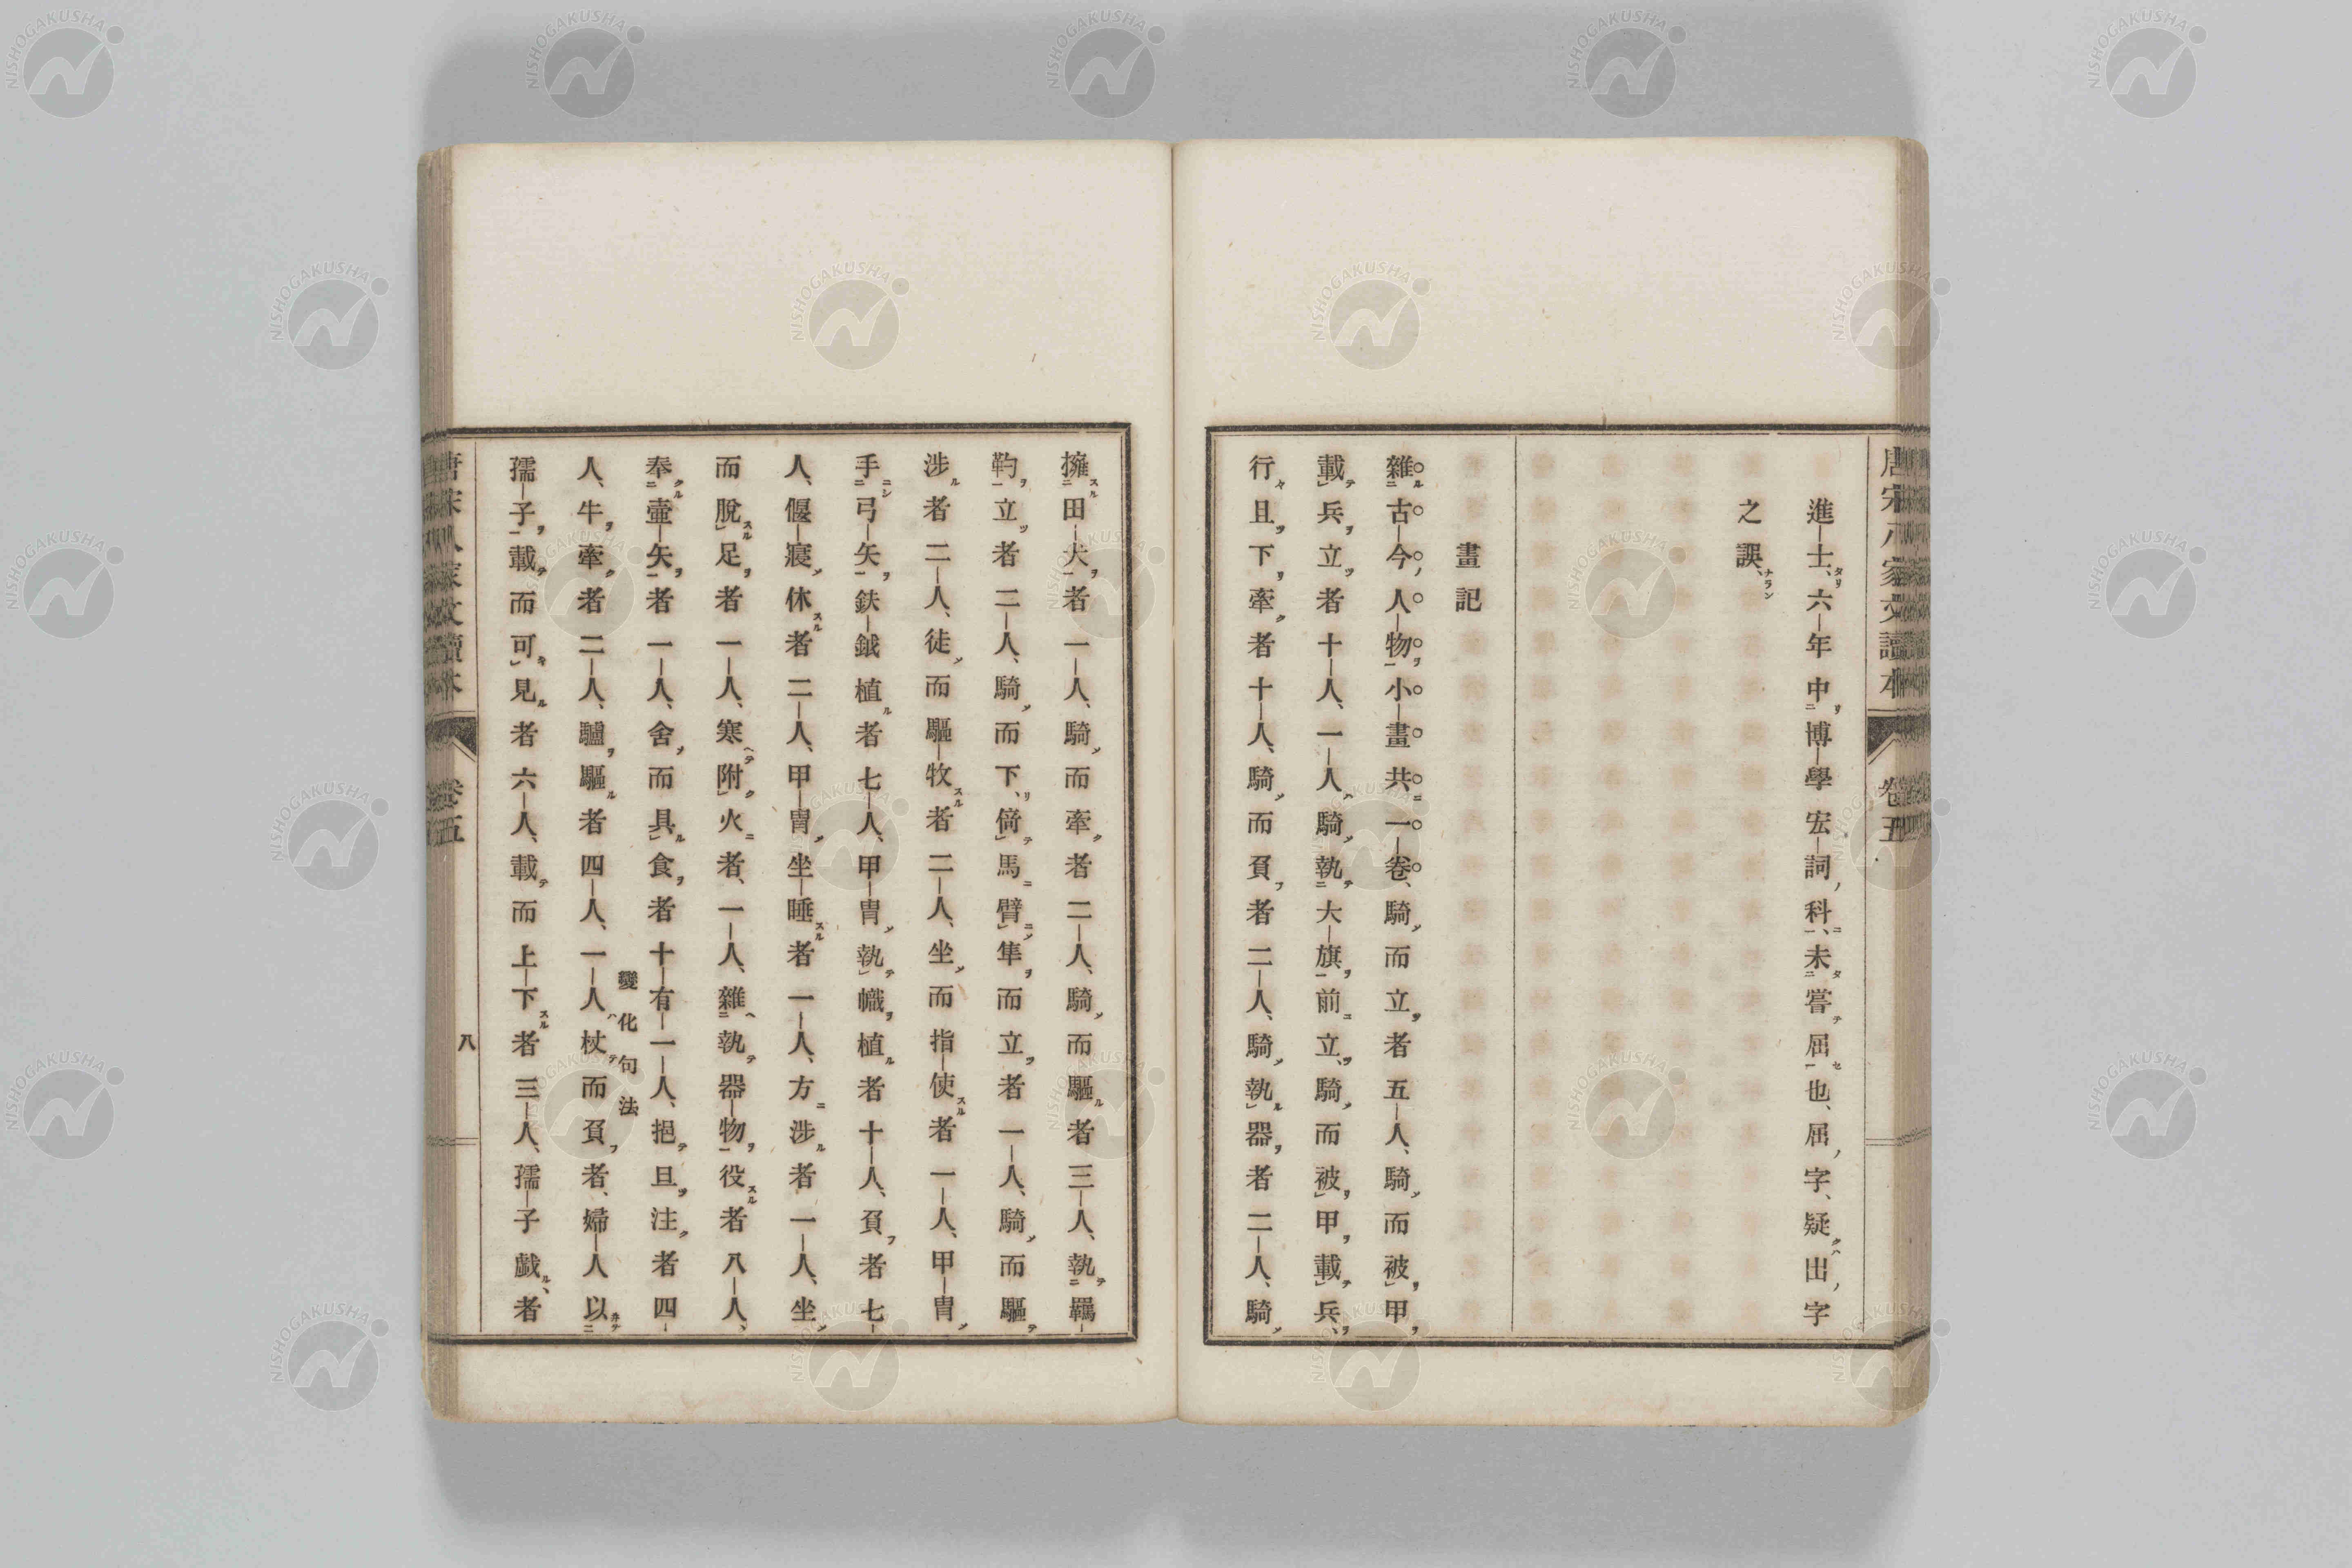 唐宋八家文讀本 卷五
進士、六年中博學宏詞科、未嘗屈也、屈字、疑出字
之誤、
畫記
雜古今人物小畫共一卷、騎而立者五人、騎而被甲
載兵立者十人、一人騎執大旗前立、騎而被甲載兵、
行且下牽者十人、騎而負者二人、騎執器者二人、騎
擁田犬者一人、騎而牽者二人、騎而驅者三人、執羈
靮立者二人、騎而下、倚馬臂隼而立者一人、騎而驅
涉者二人、徒而驅牧者二人、坐而指使者一人、甲冑
手弓矢鈇鉞植者七人、甲冑執幟植者十人、負者七
人、偃寢休者二人、甲冑坐睡者一人、方涉者一人、坐
而脫足者一人、寒附火者、一人、雜執器物役者八人、
奉壷矢者一人、舍而具食者十有一人、挹且注者四
變化句法
人、牛牽者二人、驢驅者四人、一人杖而負者、婦人以
孺子載而可見者六人、載而上下者三人、孺子戲者
唐宋八家文讀本 卷五 八
NISHOGAKUSHA